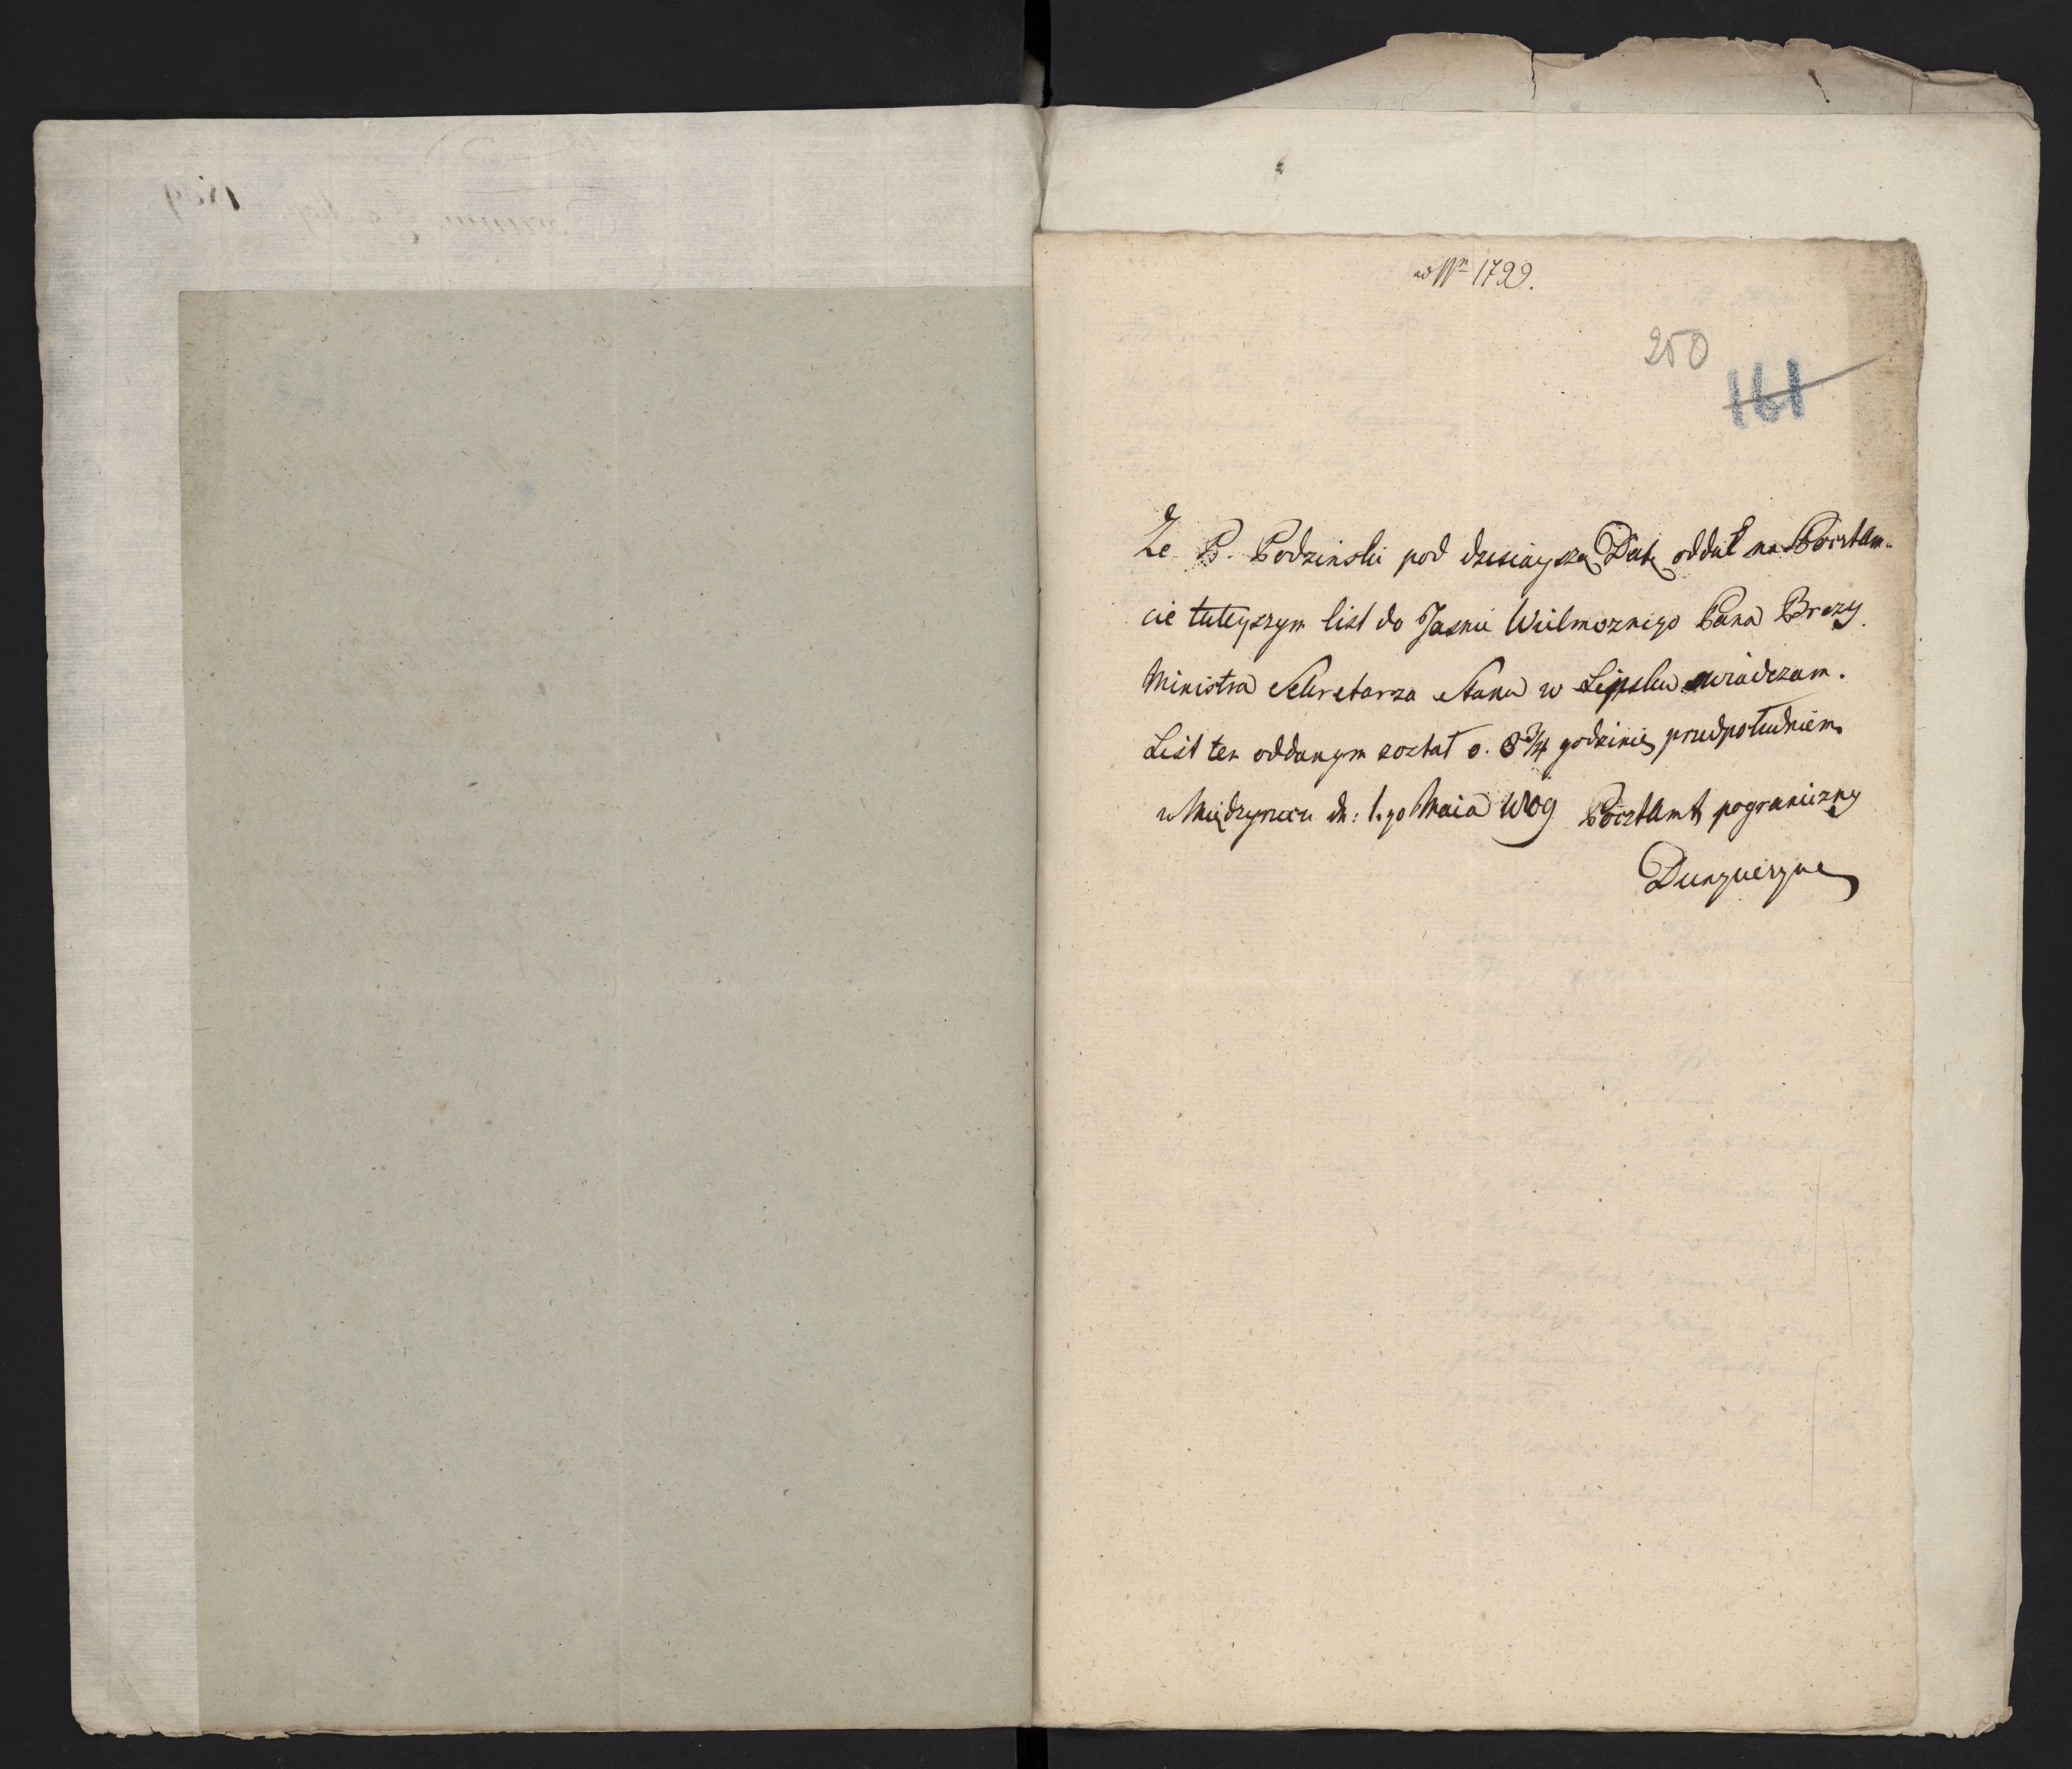 ad Nrn 1799.
250
161
Że P. Rodzinski pod dzisieyszą Datą oddał na Pocztam-
cie tuteyszym list do Jasnie Wielmoznego Pana Brezy
Ministra Sekretarza Stanu w Lipsku zaświadczam.
List ten oddanym został o. 8 3/4 godzinie przedpołudniem
w Międzyrzecu dn: 1.go Maia 1809 Pocztamt pograniczny